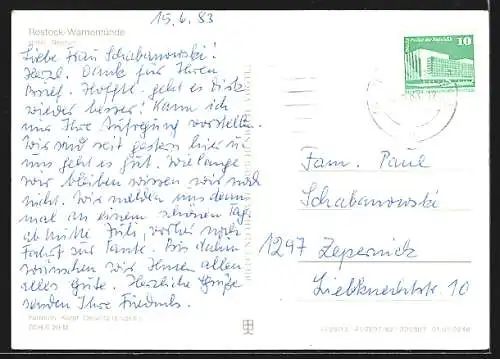 15.6.83
Rostock-Warnemünde
Hotel "Neptun"
Liebe Frau Schabanowski!
Herzl. Dank für Ihren
Brief. Hofftl. geht es
wieder besser! Kann ich
mir Ihre Aufregung vorstellen.
Wir sind seit gestern hier u.
uns geht es gut. Wie lange
wir bleiben wissen wir noch
nicht. Wir melden uns dann
mal an einem schönen Tag
ab Mitte Juli, vorher noch
Fahrt zur Tante. Bis dahin
wünschen wir Ihnen allen
alles Gute. Herzliche Grüße
senden Ihre
10
Fam. Paul
Schabanowski
1297 Zepernick
Liebknechtstr. 10